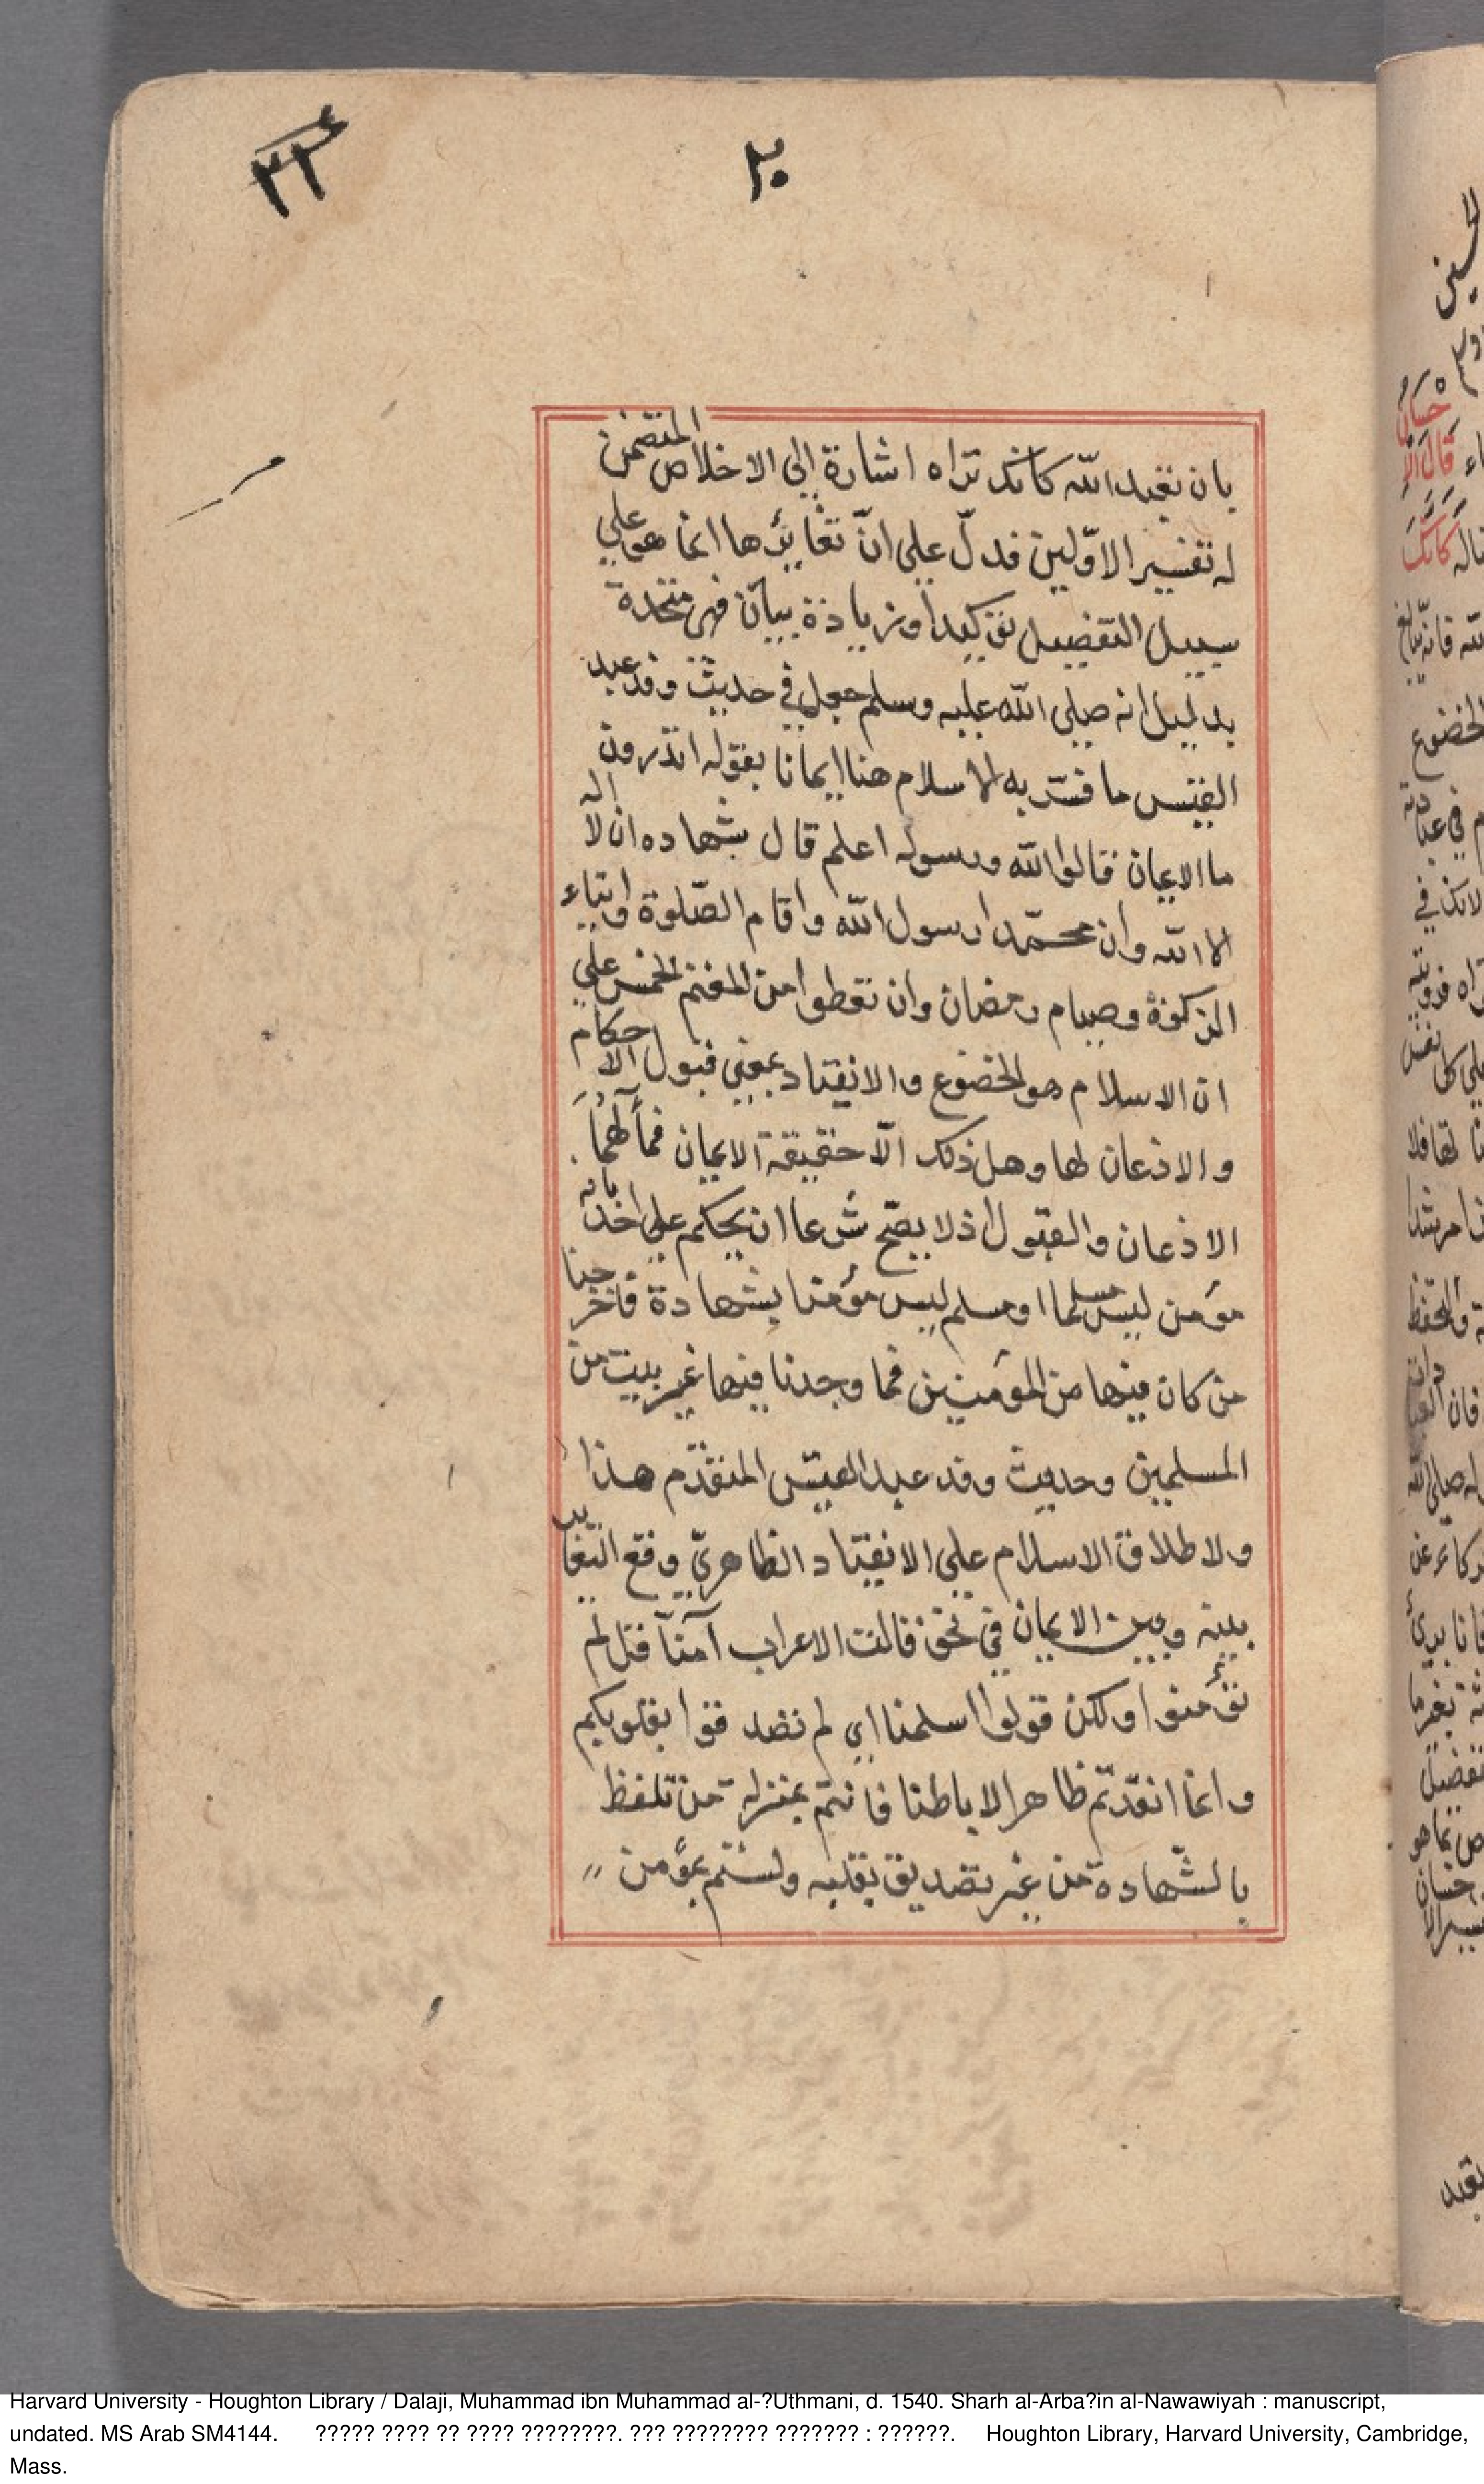 ٢٠
٢٢
بان تعبد الله كانك تراه اشارة الى الاخلاص المتضمن
له تفسير الاوّلين فدلّ على انّ تغايرها انما هو على
سبيل التفصيل توكيدا وزيادة بيان فهى متحدة
بدليل انه صلى الله عليه وسلم جعل في حديث وفد عبد
القيس ما فسّر به الاسلام هنا ايمانا بقوله اتدرون
ما الايمان قالوا الله ورسوله اعلم قال شهاده ان لا اله
الا الله وان محمّدا رسول الله واقام الصّلوة وايتاء
الزكوة وصيام رمضان وان تعطوا من المغنم الخمس على
ان الاسلام هو الخضوع والانقياد بمعنى قبول الاحكام
والاذعان لها وهل ذلك الّا حقيقة الايمان فمآلهما
الاذعان والقبول اذ لا يصّح شرعا ان يحكم على احد بانه
مؤمن ليس مسلما او مسلم ليس مؤمنا بشهادة فاخرجنا
من كان فيها من المؤمنين فما وجدنا فيها غير بيت من
المسلمين وحديث وفد عبد القيس المتقدّم هذا
ولاطلاق الاسلام على الانقياد الظاهريّ وقع التغاير
بينه وبين الايمان في نحو قالت الاعراب آمنّا قل لم
تؤمنوا ولكن قولوا اسلمنا اى لم تصدقوا بقلوبكم
وانما انقدتم ظاهرا لا باطنا فانتم بمنزلة من تلفظ
بالشّهادة من غير تصديق بقلبه ولستم بمؤمن
Harvard University - Houghton Library / Dalaji, Muhammad ibn Muhammad al-?Uthmani, d. 1540. Sharh al-Arba?in al-Nawawiyah : manuscript,
undated. MS Arab SM4144. ????? ???? ?? ???? ????????. ??? ???????? ??????? : ??????. Houghton Library, Harvard University, Cambridge,
Mass.